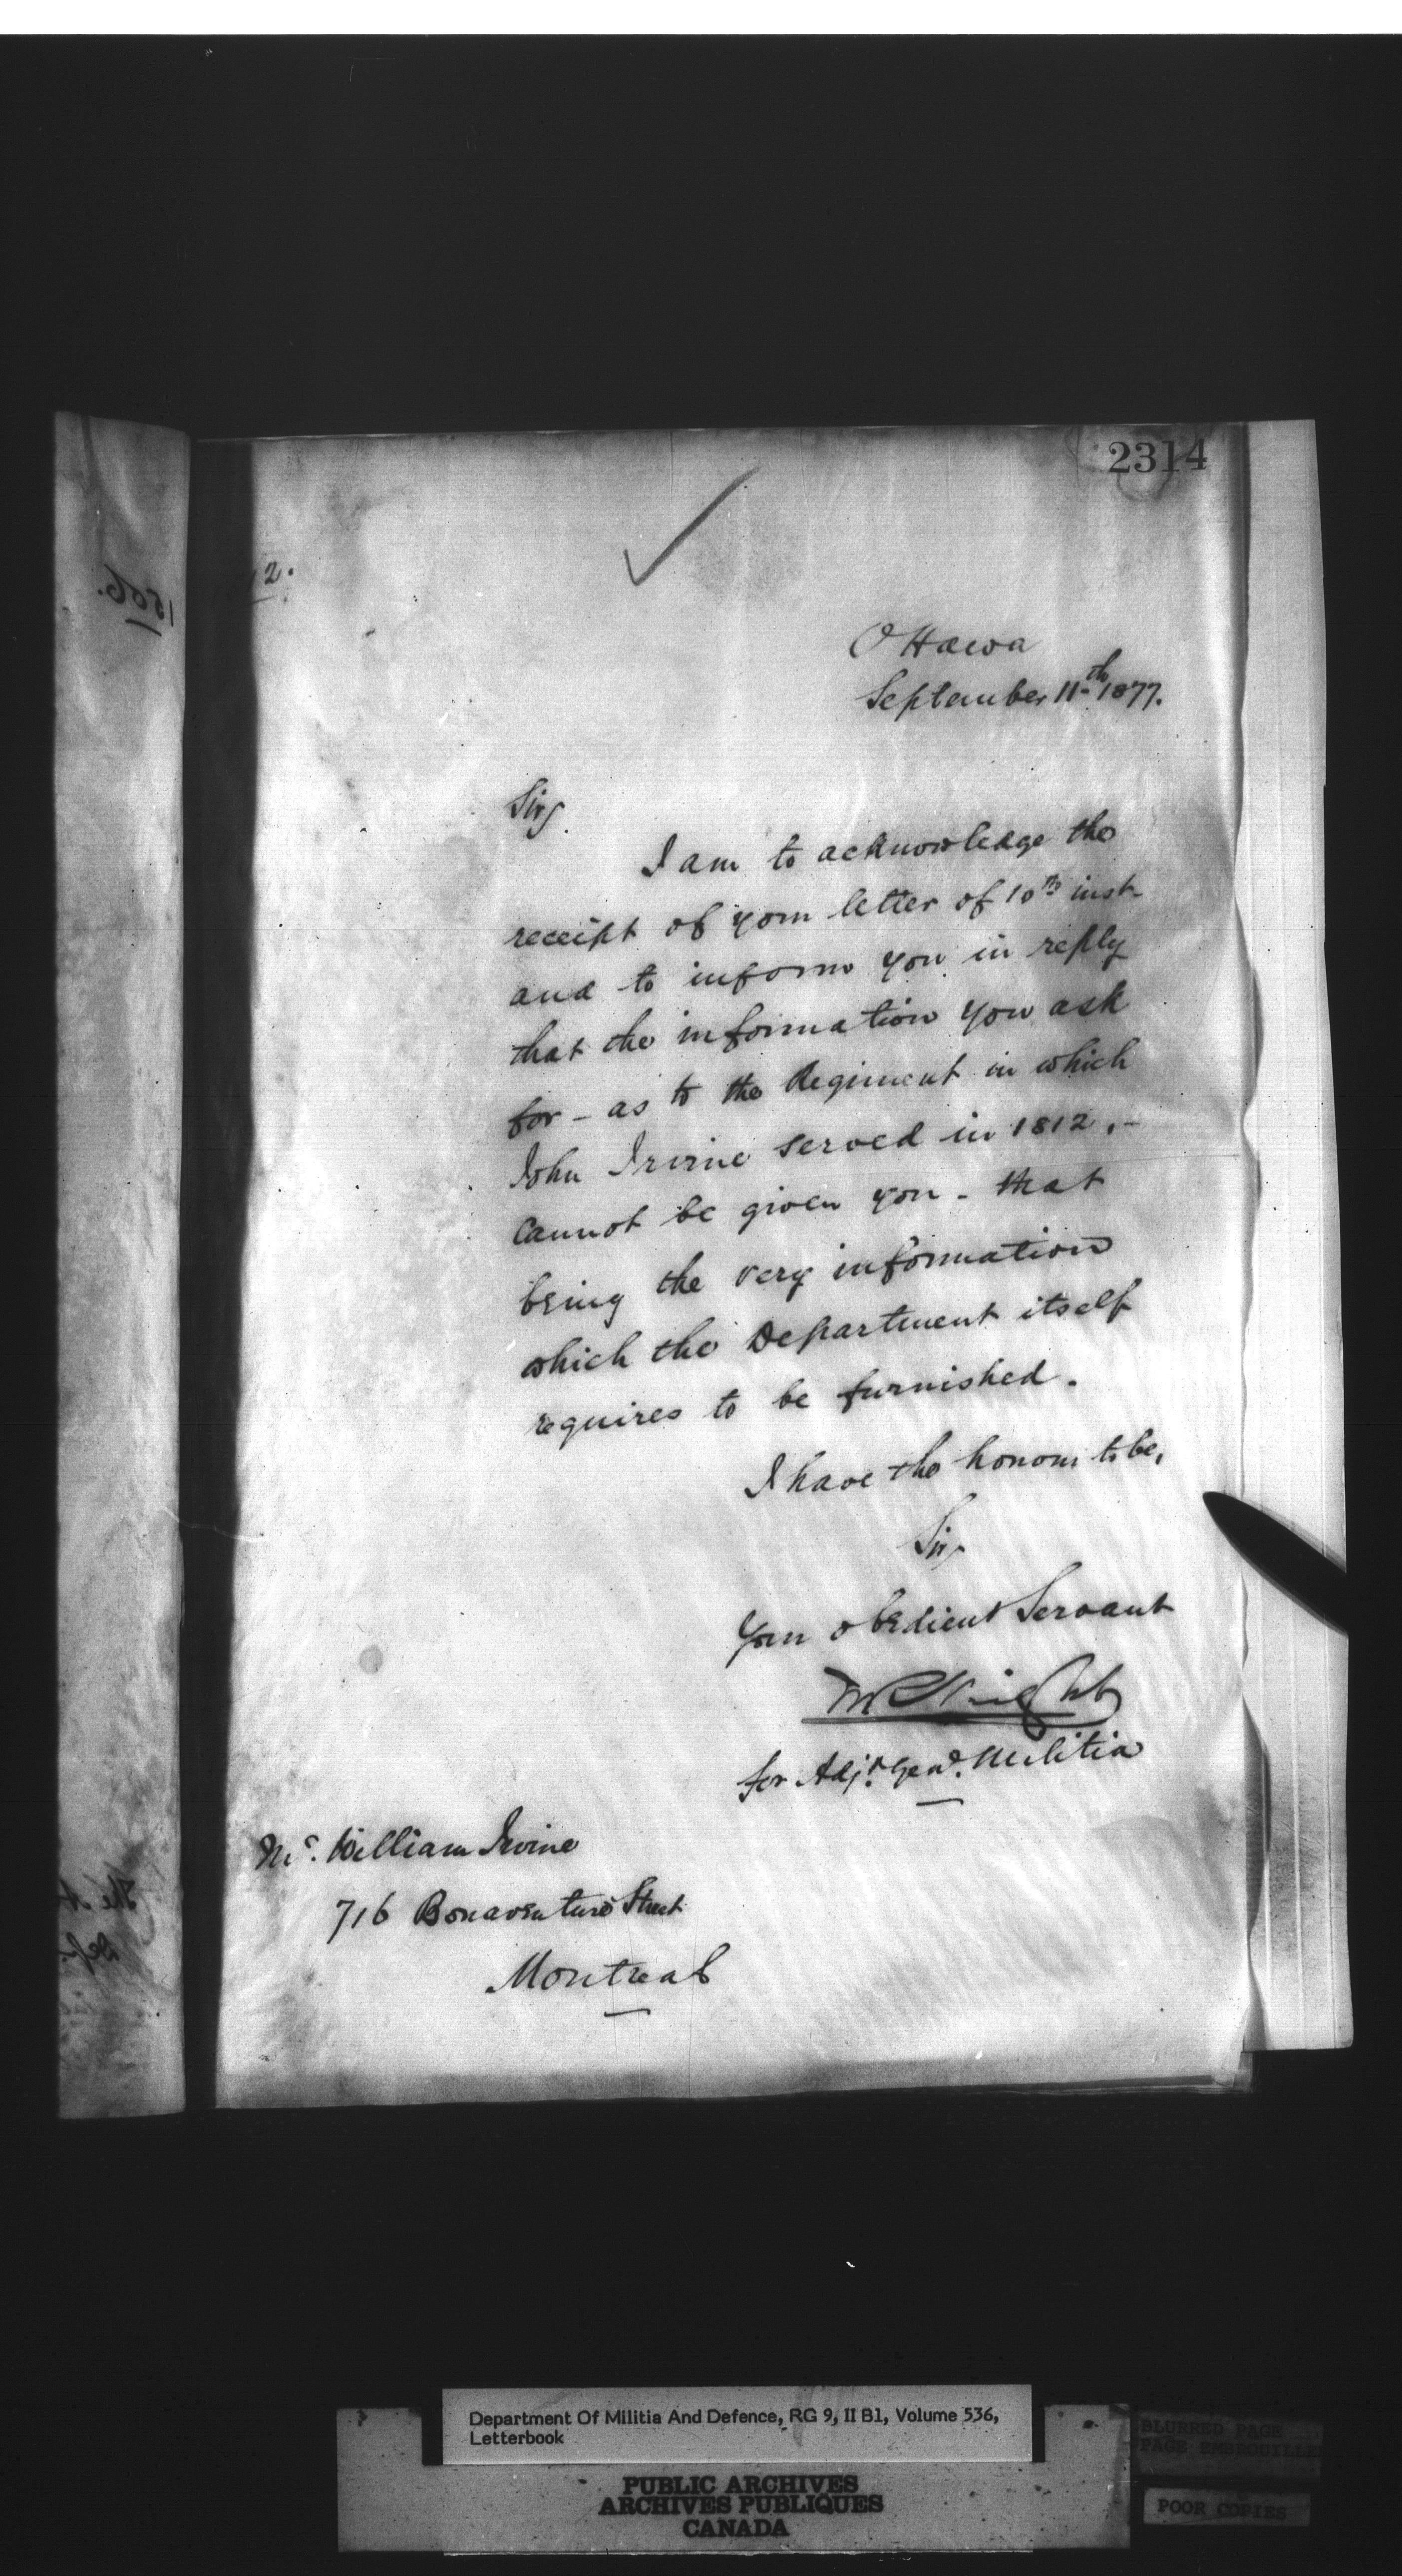 2314
2.
1506.
Ottawa
September 11th 1877.
Sir,
I am to acknowledge the
receipt of your letter of 10th inst.
and to inform you in reply
that the information you ask
for – as to the Regiment in which
John Irvine served in 1812, –
cannot be given you – that
being the very information
which the Department itself
requires to be furnished.
I have the honour to be,
Sir,
Your obedient Servant
for Adjt. Genl. Militia
Mr. William Irvine
716 Bonaventure Street
Montreal
Department Of Militia And Defence, RG 9, II B1, Volume 536,
Letterbook
PUBLIC ARCHIVES
ARCHIVES PUBLIQUES
CANADA
BLURRED PAGE
PAGE EMBROUILLEE
POOR COPIES